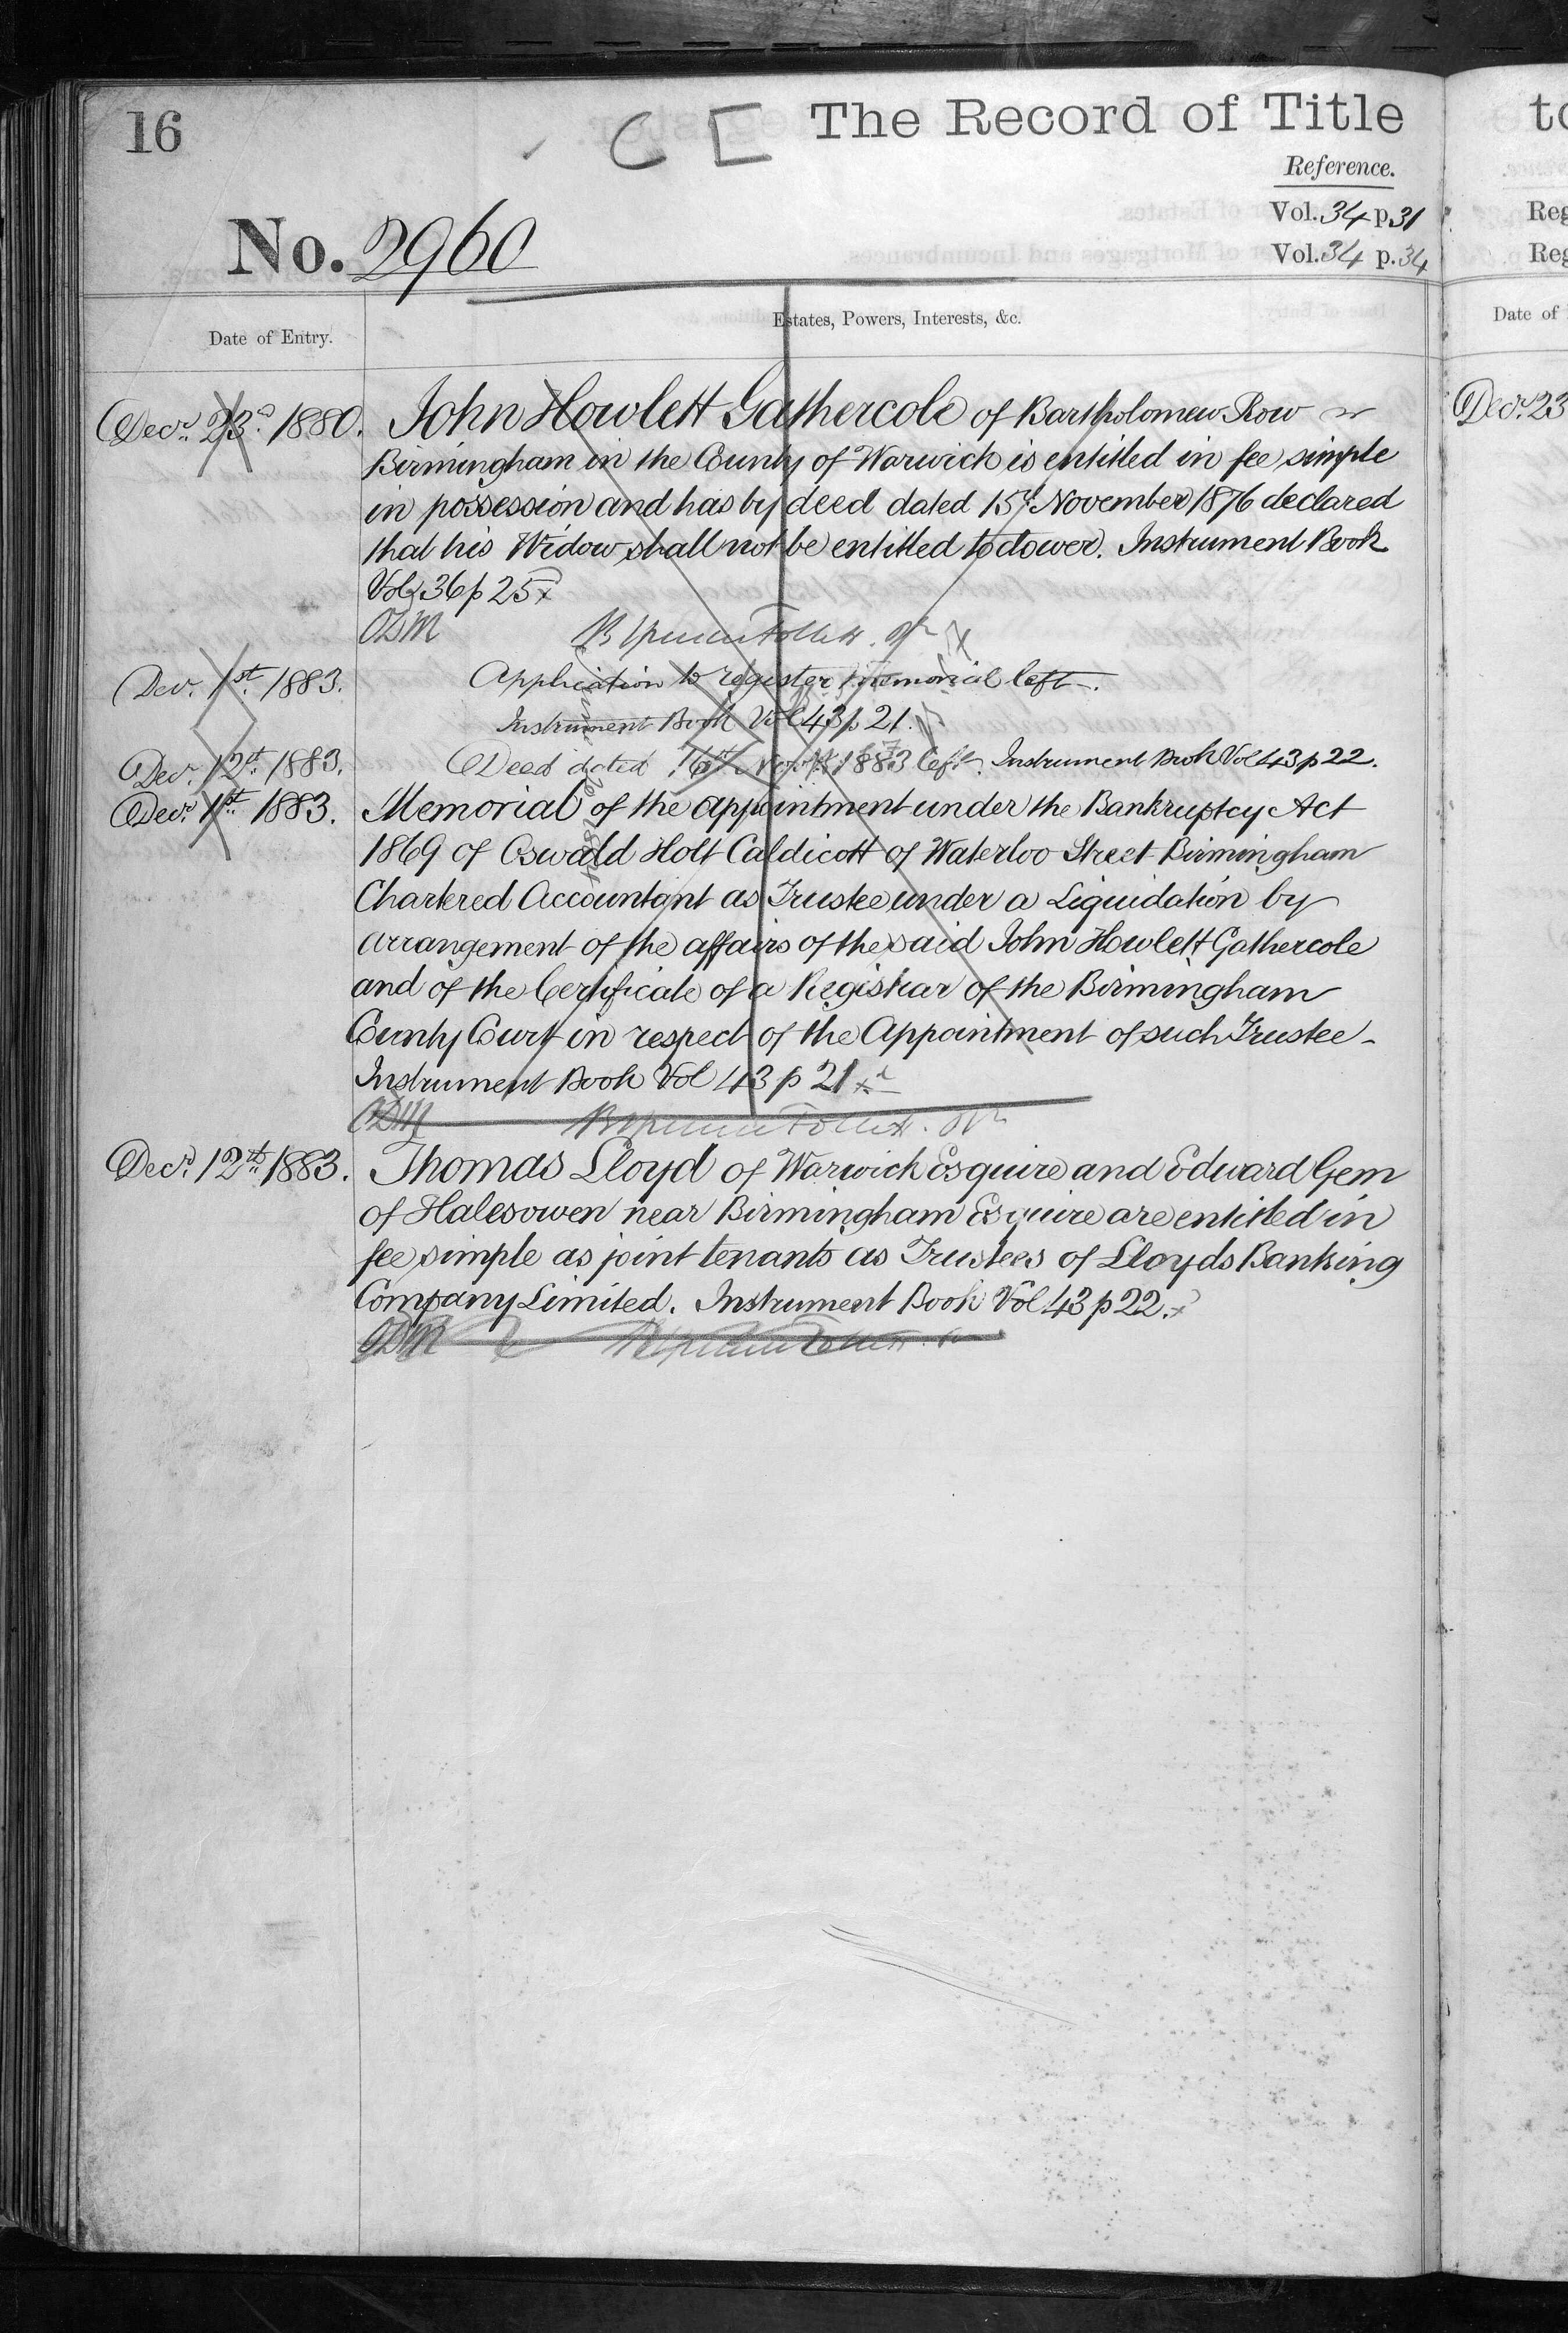 16
C C The Record of Title
Reference.
Vol. 34 p 31
No. 2960
Vol. 34 p. 34
Date of Entry.
Estates, Powers, Interests, &c.
Decr. 23d 1880. John Howlett Gathercole of Bartholomew Row
Birmingham in the County of Warwick is entitled in fee simple
in possession and has by deed dated 15th November 1876 declared
that his Widow shall not be entitled to dower. Instrument Book
Vol 36 p 25
ODM
Dec. 1st. 1883. Application to register memorial left.
Instrument Book Vol 43 p 21.
Dec. 12th. 1883. Deed dated 16th Novr. 1883 left. Instrument Book Vol 43 p 22.
Decr. 1st. 1883. Memorial of the appointment under the Bankruptcy Act
1869 of Oswald Holt Caldicott of Waterloo Street Birmingham
Chartered Accountant as Trustee under a Liquidation by
arrangement of the affairs of the said John Howlett Gathercole
and of the Certificate of a Registrar of the Birmingham
County Court in respect of the Appointment of such Trustee -
Instrument Book Vol 43 p 21
ODM
Decr. 12th. 1883. Thomas Lloyd of Warwick Esquire and Edward Gem
of Halesowen near Birmingham Esquire are entitled in
fee simple as joint tenants as Trustees of Lloyds Banking
Company Limited. Instrument Book Vol 43 p 22.
ODM
to
Reg
Reg
Date of
Decr. 23